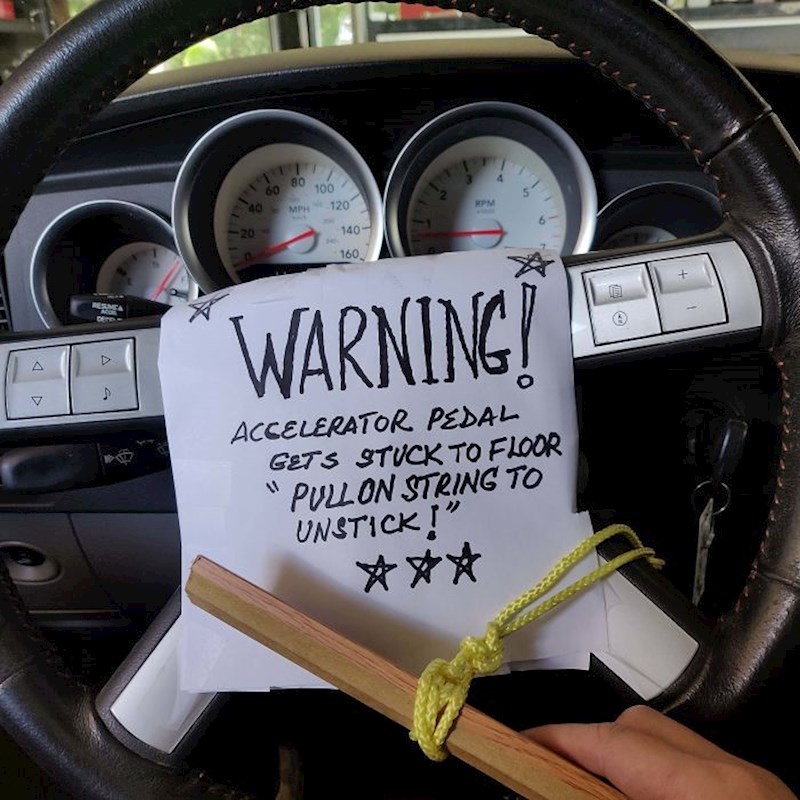 60 80 100
40 120
20 MPH 140
0 160
3 4
2 RPM 5
1 6
7
RESUME
ACCEL
WARNING!
ACCELERATOR PEDAL
GETS STUCK TO FLOOR
"PULL ON STRING TO
UNSTICK!"